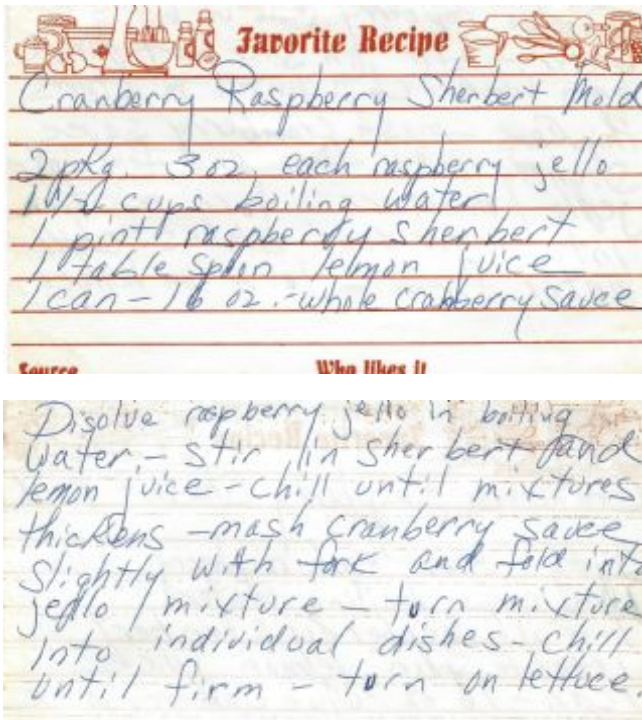 Favorite Recipe
Cranberry Raspberry Sherbert Mold
2 pkg. 3 oz. each raspberry jello
1 1/2 cups boiling water
1 pint raspberry sherbert
1 table spoon lelmon juice
1 can - 16 oz. - whole crabberry sauce
Source Who likes it
Disolve raspberry jello in boiling
water - stir in sherbert and
lemon juice - chill until mixtures
thickens - mash cranberry sauce
slightly with fork and fold into
jello mixture - turn mixture
into individual dishes - chill
until firm - turn on lettuce